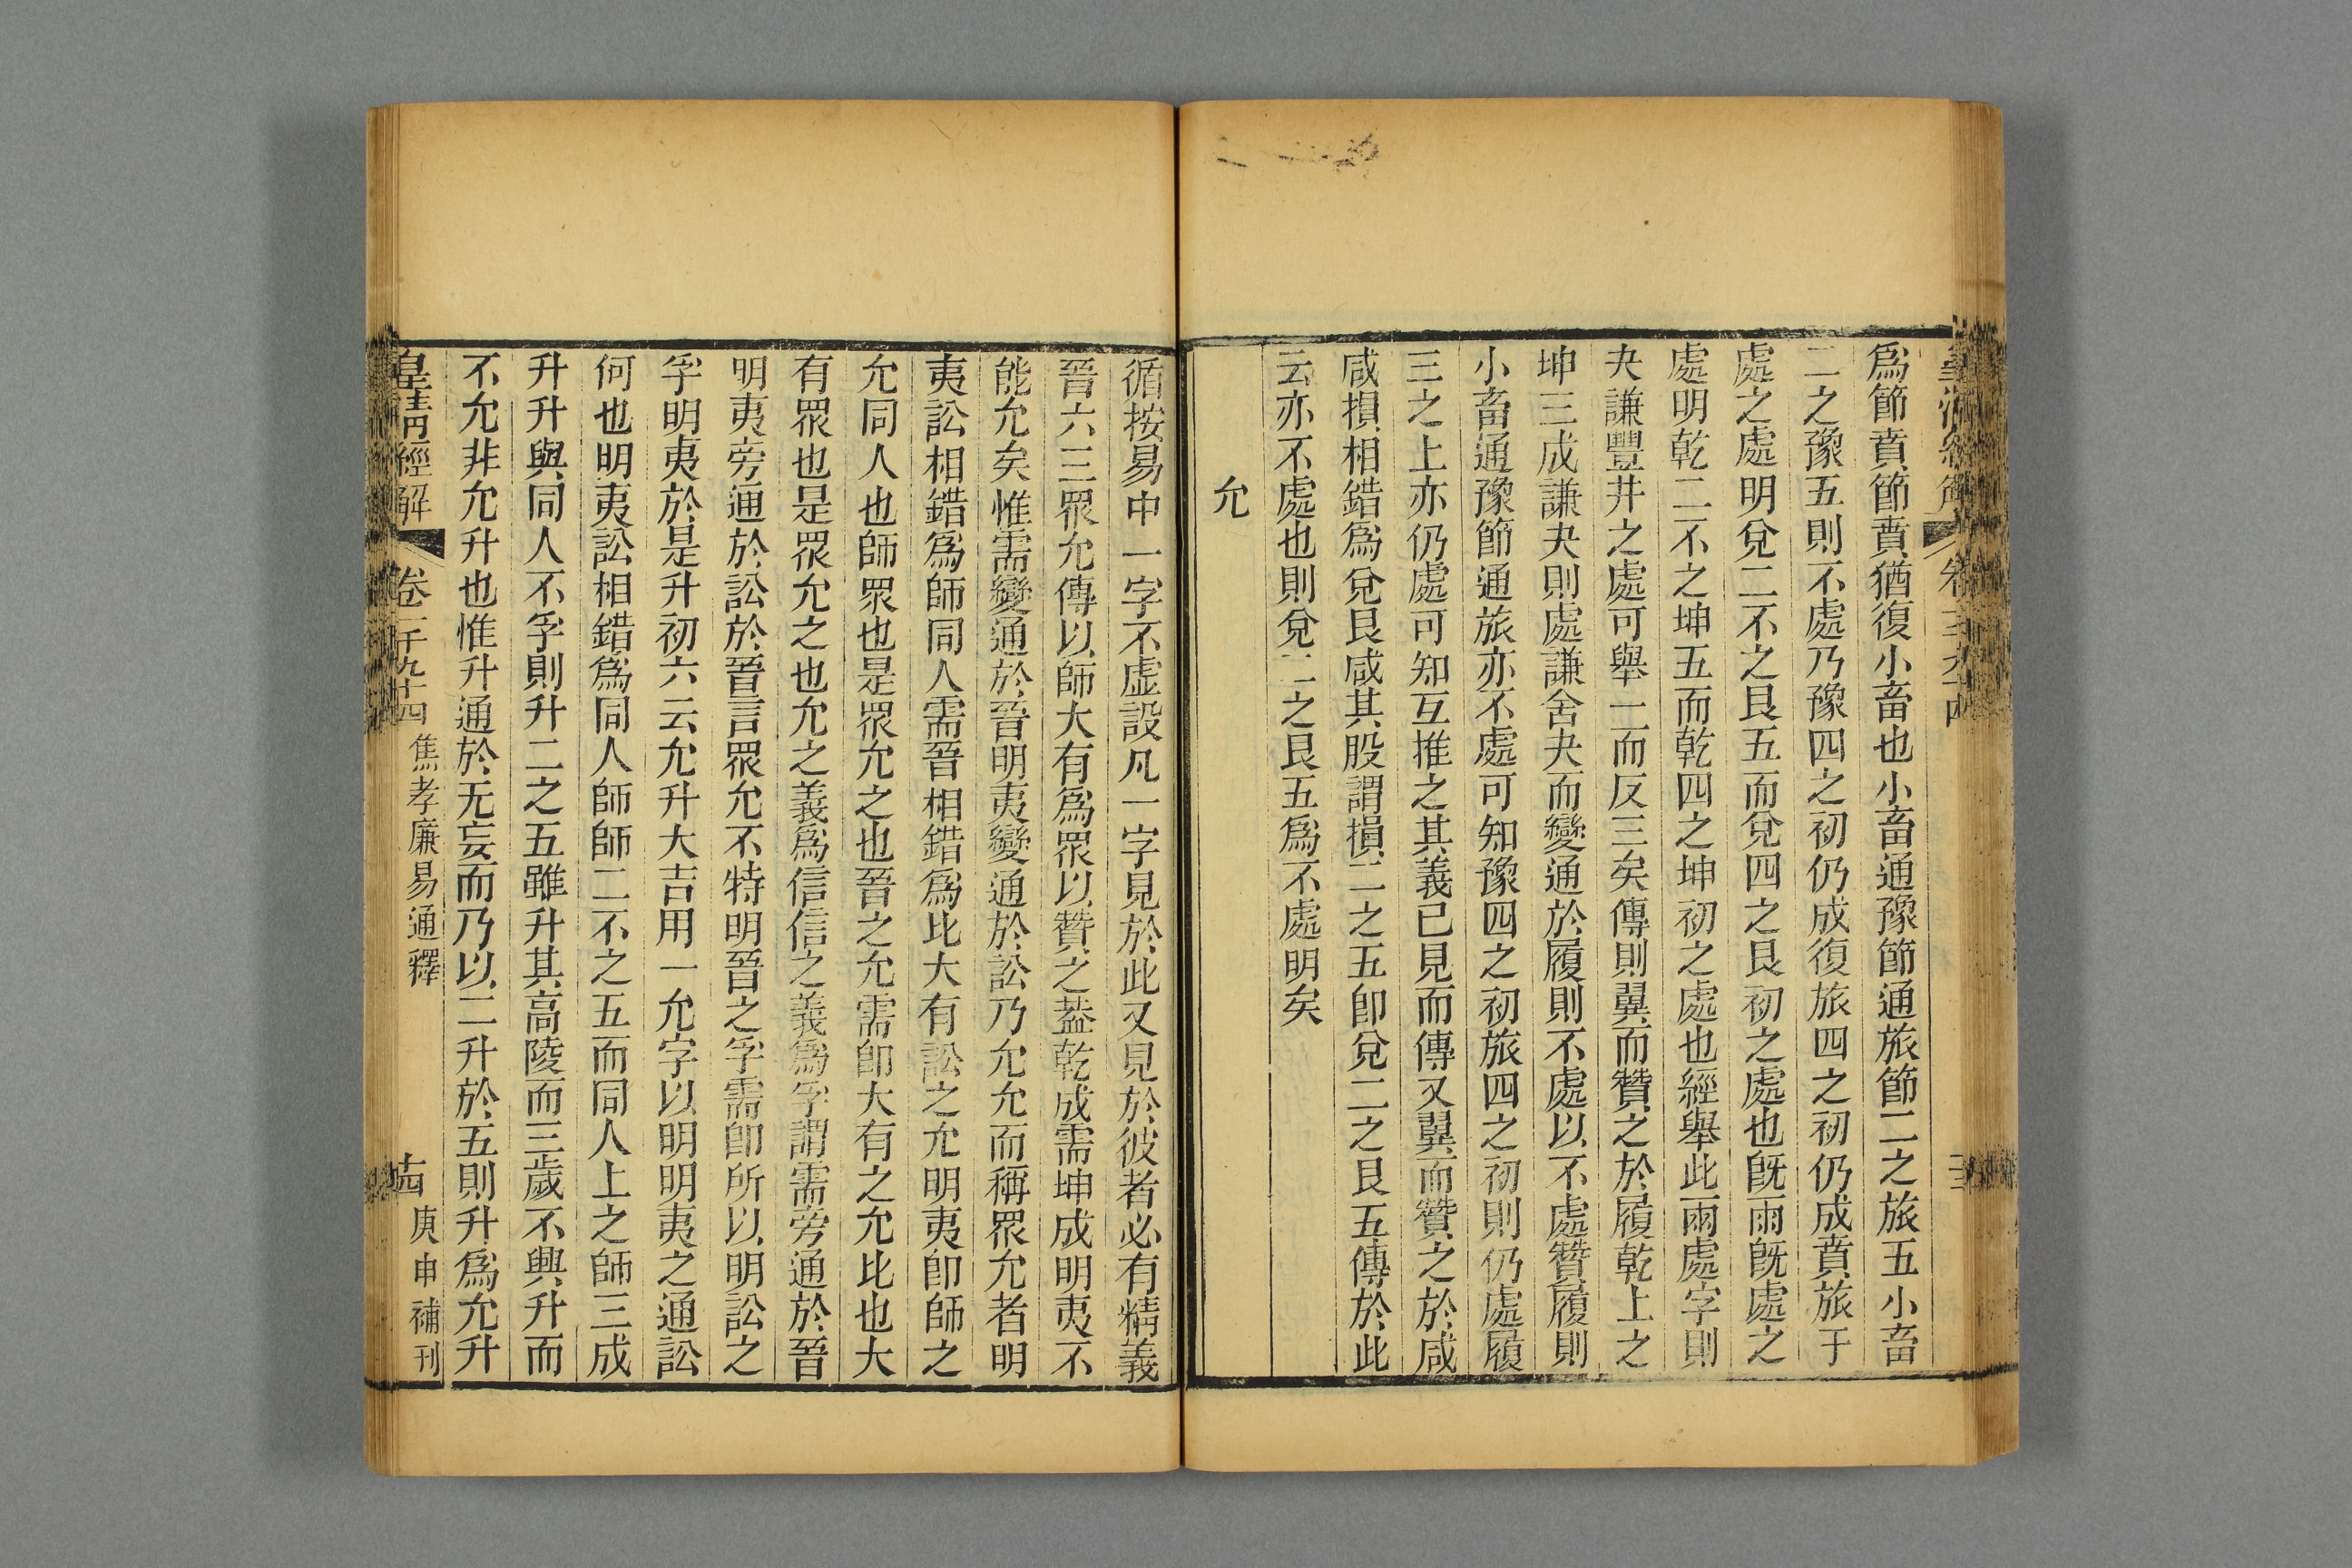 爲節賁節賁猶復小畜也小畜通豫節通旅節二之旅五小畜
二之豫五則不處乃豫四之初仍成復旅四之初仍成賁旅于
處之處明兌二不之艮五而兌四之艮初之處也旣雨旣處之
處明乾二不之坤五而乾四之坤初之處也經舉此雨處字則
夬謙豐井之處可舉一而反三矣傳則翼而贊之於履乾上之
坤三成謙夬則處謙舍夬而變通於履則不處以不處贊履則
小畜通豫節通旅亦不處可知豫四之初旅四之初則仍處履
三之上亦仍處可知互推之其義已見而傳又翼而贊之於咸
咸損相錯爲兌艮咸其股謂損二之五卽兌二之艮五傳於此
云亦不處也則兌二之艮五爲不處明矣
允
循按易中一字不虛設凡一字見於此又見於彼者必有精義
晉六三眾允傳以師大有爲眾以贊之葢乾成需坤成明夷不
能允矣惟需變通於晉明夷變通於訟乃允允而稱眾允者明
夷訟相錯爲師同人需晉相錯爲比大有訟之允明夷卽師之
允同人也師眾也是眾允之也晉之允需卽大有之允比也大
有眾也是眾允之也允之義爲信信之義爲孚謂需旁通於晉
明夷旁通於訟於晉言眾允不特明晉之孚需卽所以明訟之
孚明夷於是升初六云允升大吉用一允字以明明夷之通訟
何也明夷訟相錯爲同人師師二不之五而同人上之師三成
升升與同人不孚則升二之五雖升其高陵而三歲不興升而
不允非允升也惟升通於无妄而乃以二升於五則升爲允升
皇淸經解
卷一千九十四
焦孝廉易通釋
十四
庚申補刊